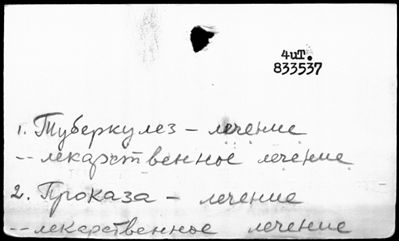 4иТ.
833537
1. Туберкулез – лечение
-- лекарственное лечение
2. Проказа – лечение
-- лекарственное лечение